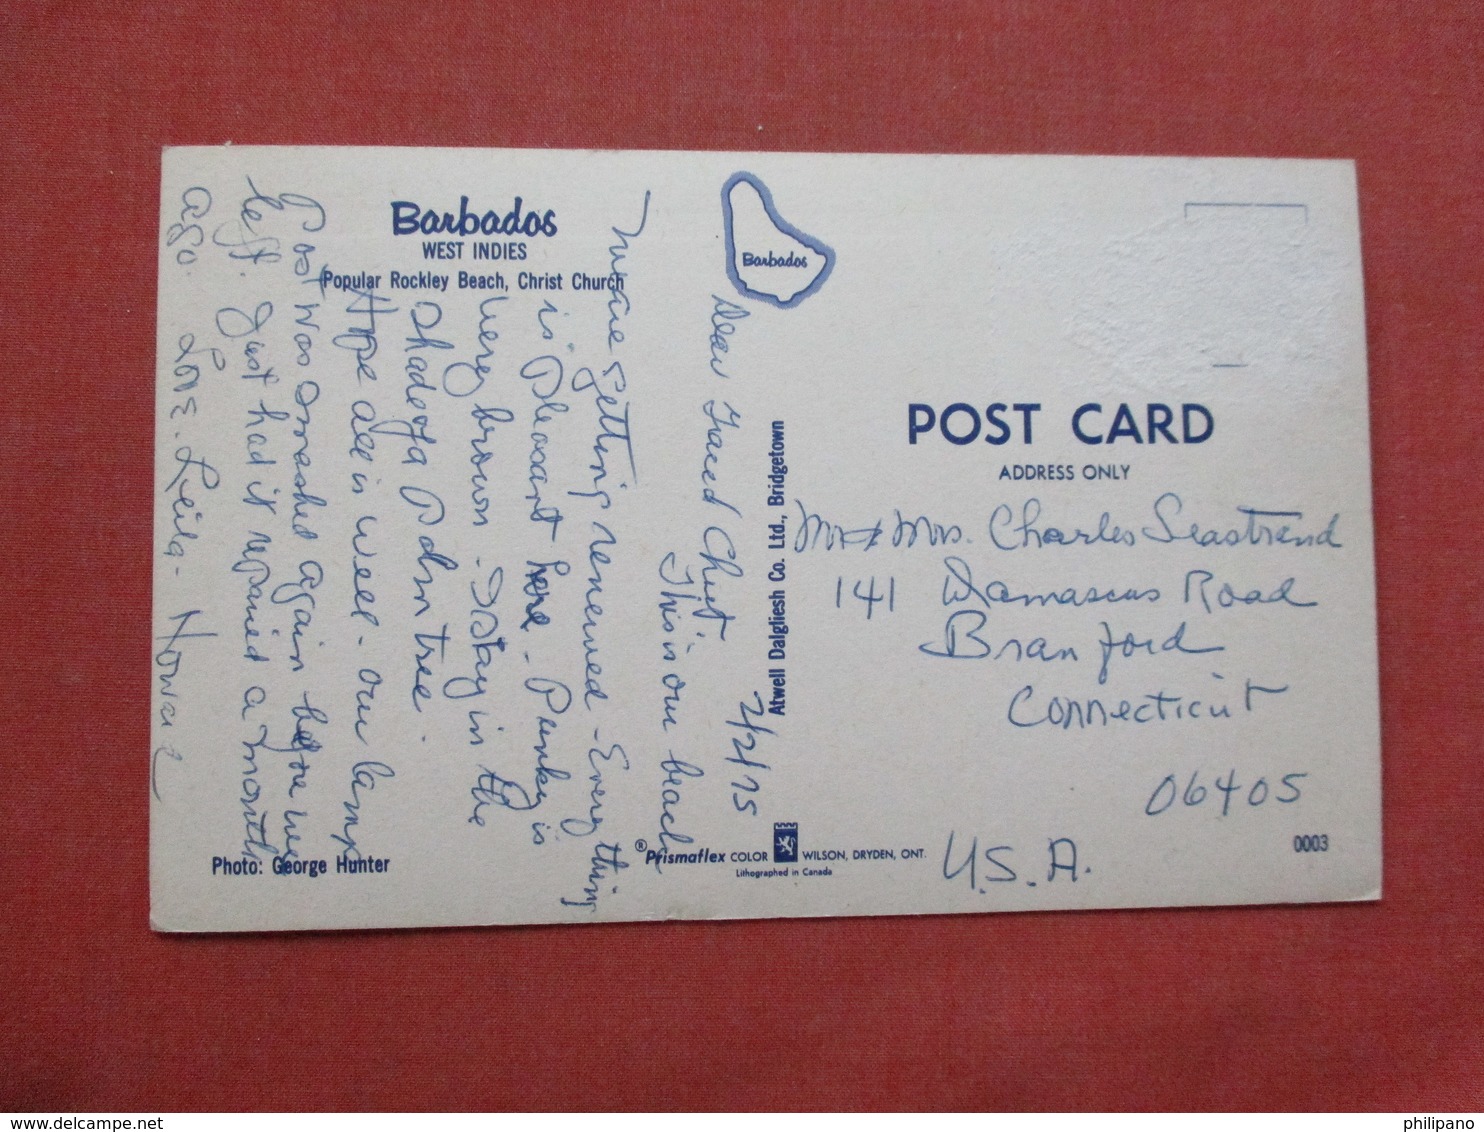 Barbados
WEST INDIES
Popular Rockley Beach, Christ Church
Barbados
POST CARD
ADDRESS ONLY
Mr & Mrs. Charles Seastrand
141 Damascus Road
Branford
Connecticut
06405
U.S.A.
0003
Atwell Dalgliesh Co. Ltd., Bridgetown
2/2/75
Dear
This is our beach
getting renewed - Every thing
is pleasant here - Punky is
very brown - I stay in the
shade of a palm tree.
Hope all is well - our lamp
Post was smashed again before we
left. Just had it repaired a month
ago. Love - Leila - Howard
Photo: George Hunter
® Prismaflex COLOR WILSON, DRYDEN, ONT.
Lithographed in Canada
philipano
delcampe.net